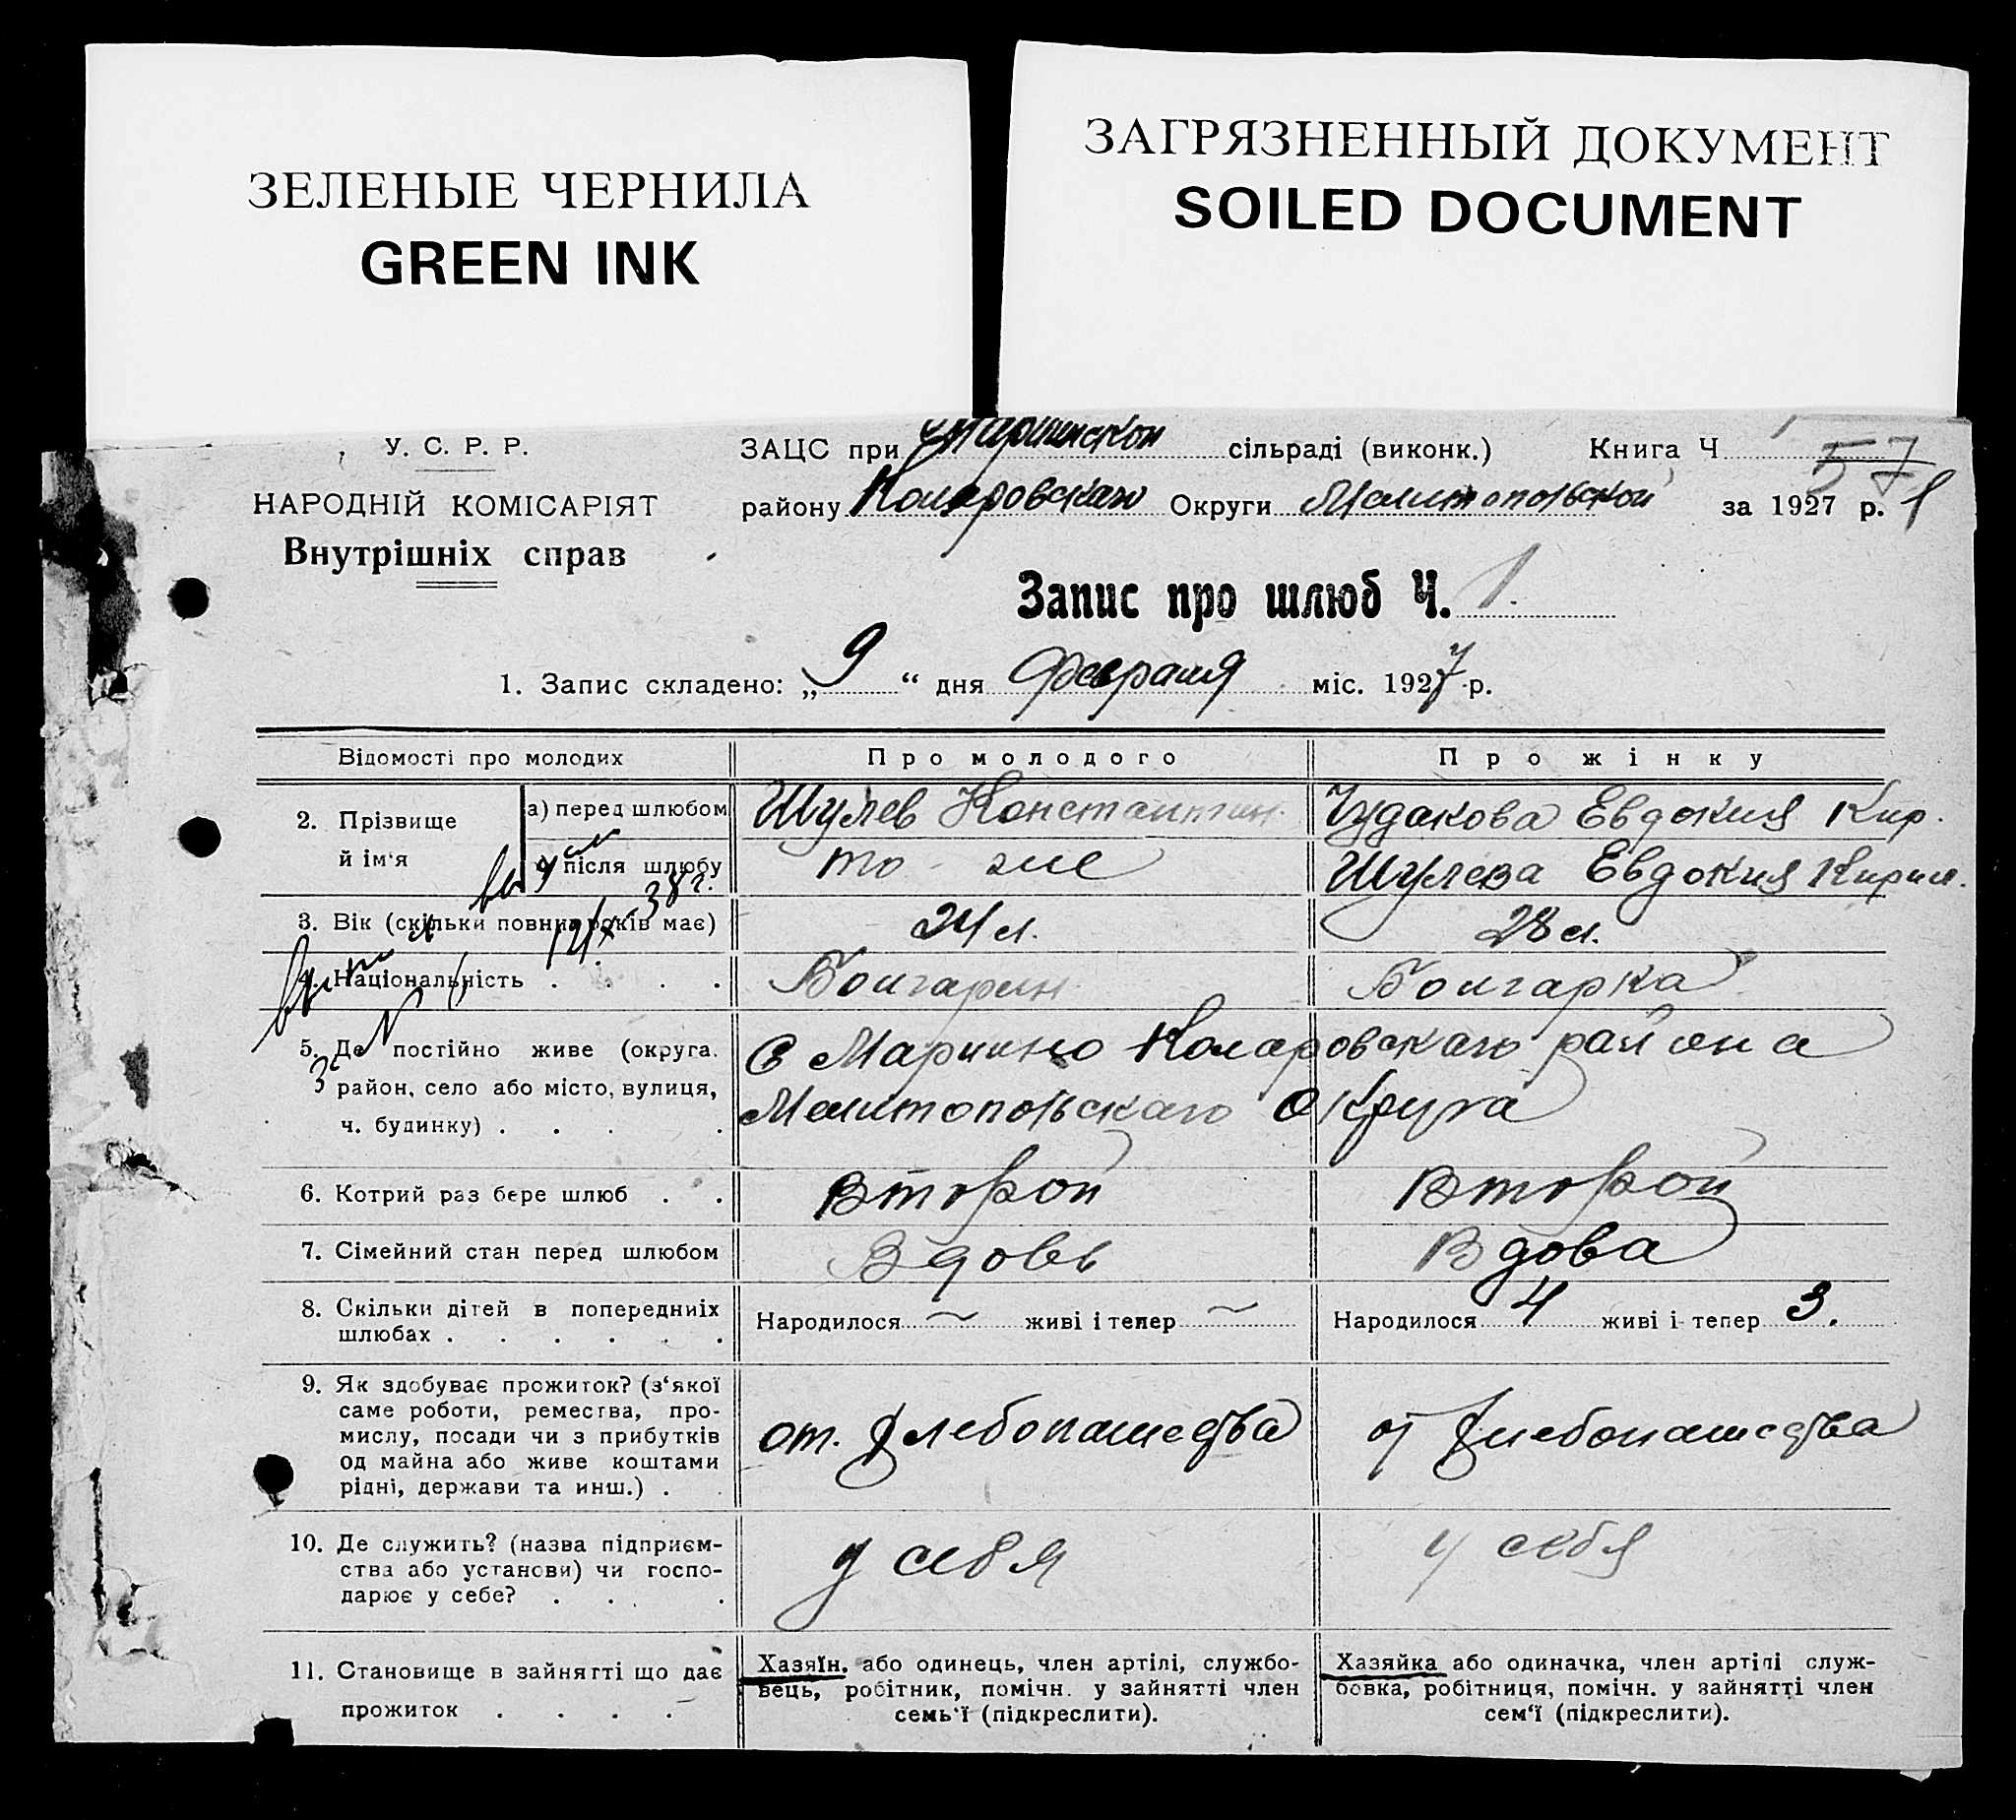 ЗЕЛЕНЫЕ ЧЕРНИЛА
GREEN INK
ЗАГРЯЗНЕННЫЙ ДОКУМЕНТ
SOILED DOCUMENT
У. С. Р. Р.
НАРОДНІЙ КОМІСАРІЯТ
Внутрішніх справ
ЗАЦС при сільраді (виконк.) Книга Ч 57
району Коларовскаго Округи Мелитопольской за 1927 р. 1
Запис про шлюб Ч. 1.
1. Запис складено: „ 9 “ дня Февраля міс. 1927 р.
Відомості про молодих Про молодого Про жінку
2. Прізвище й ім‘я
а) перед шлюбом Шулев Константин Чудакова Евдокия Кир.
після шлюбу то же Шулева Евдокия Кирил.
38 г.
3. Вік (скільки повних років має) 24 л. 28 л.
4. Національність . . . . Болгарин Болгарка
5. Де постійно живе (округа, район, село або місто, вулиця, ч. будинку) . . . .
С Мариино Коларовскаго района
Мелитопольскаго Округа
6. Котрий раз бере шлюб . . Второй Второй
7. Сімейний стан перед шлюбом Вдовь Вдова
8. Скільки дітей в попередніх
шлюбах . . . . . .
Народилося ~ живі і тепер ~ Народилося 4 живі і тепер 3.
9. Як здобуває прожиток? (з‘якої
саме роботи, ремества, про-
мислу, посади чи з прибутків
од майна або живе коштами
рідні, держави та инш.) .
от. хлебопашества от хлебопашества
10. Де служить? (назва підприєм-
ства або установи) чи госпо-
дарює у себе? . . . .
у себя у себя
11. Становище в зайнятті що дає
прожиток . . . .
Хазяїн, або одинець, член артілі, службо-
вець, робітник, помічн. у зайнятті член
семь‘ї (підкреслити).
Хазяйка або одиначка, член артілі служ-
бовка, робітниця, помічн. у зайнятті член
сем‘ї (підкреслити).